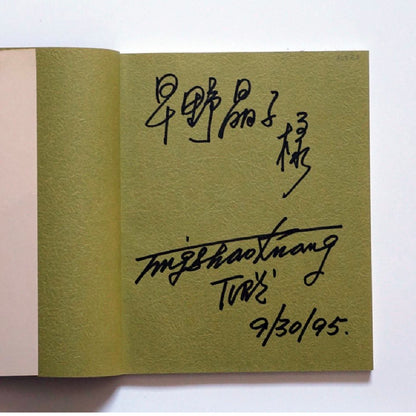 早野晶子
様
TingShaoKuang
丁绍光
9/30/95.